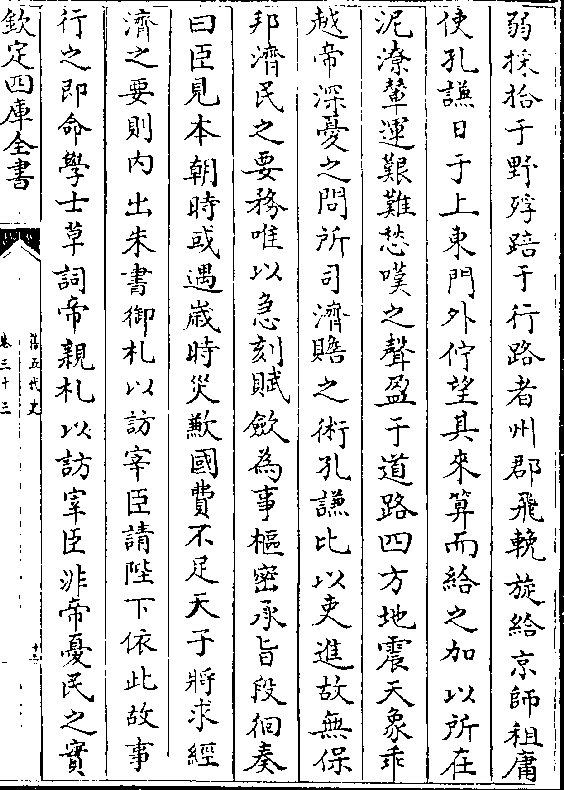 弱採拾于野殍踣于行路者州郡飛輓旋給京師租庸
使孔謙日于上東門外佇望其來算而給之加以所在
泥潦輦運艱難愁嘆之聲盈于道路四方地震天象乖
越帝深憂之問所司濟贍之術孔謙比以吏進故無保
邦濟民之要務唯以急刻賦斂為事樞密承旨段徊奏
曰臣見本朝時或遇歲時災歉國費不足天子將求經
濟之要則内出朱書御札以訪宰臣請陛下依此故事
行之即命學士草詞帝親札以訪宰臣非帝憂民之實
欽定四庫全書
舊五代史
卷三十三